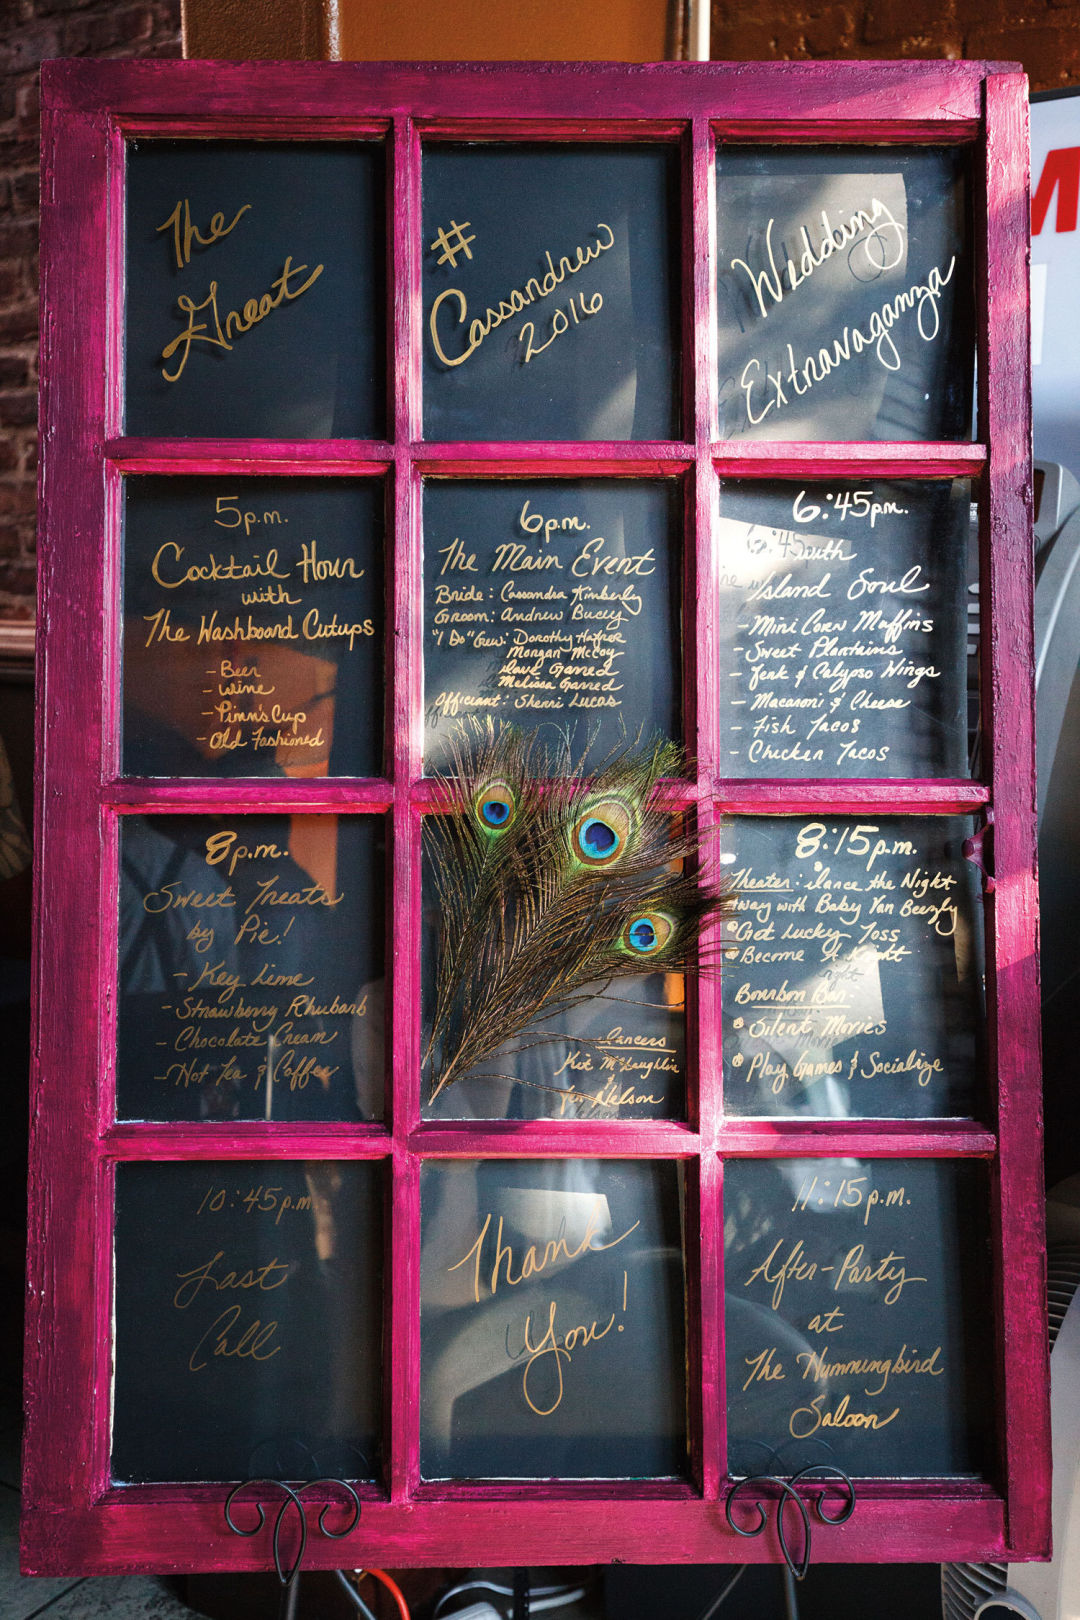 The
Great
#
Cassandrew
2016
Wedding
Extravaganza
5p.m.
Cocktail Hour
with
The Washboard Cutups
- Beer
- Wine
- Pimm's Cup
- Old Fashioned
6p.m.
The Main Event
Bride: Cassandra Kimberly
Groom: Andrew Bucey
"I Do" Crew: Dorothy Hafner
Morgan McCoy
Dave Garred
Melissa Garred
Officiant: Sherri Lucas
6:45pm.
with
Island Soul
- Mini Corn Muffins
- Sweet Plantains
- Jerk & Calypso Wings
- Macaroni & Cheese
- Fish Tacos
- Chicken Tacos
8p.m.
Sweet Treats
by Pie!
- Key Lime
- Strawberry Rhubarb
- Chocolate Cream
- Hot Tea & Coffee
Dancers
Kit McLaughlin
&
Nelson
8:15p.m.
Theater: Dance the Night
Away with Baby Van Beezly
• Get Lucky Toss
• Become A Knight
Bourbon Bar:
• Silent Movies
• Play Games & Socialize
10:45p.m.
Last
Call
Thank
You!
11:15p.m.
After-Party
at
The Hummingbird
Saloon
M